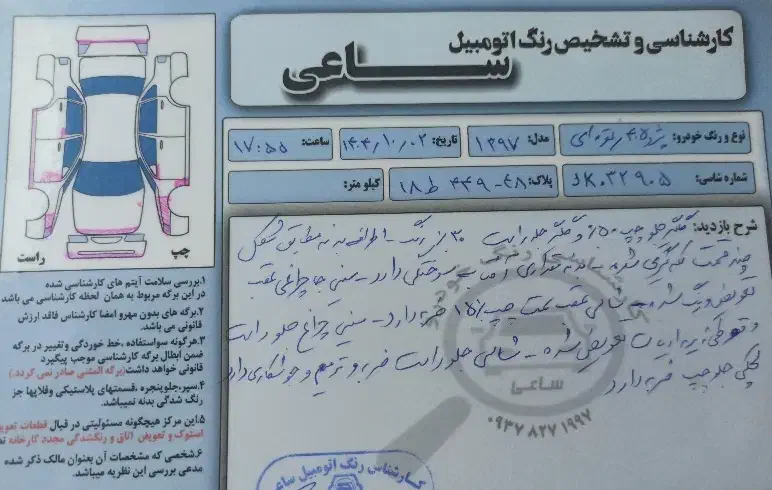 کارشناسی و تشخیص رنگ اتومبیل
ساعی
نوع و رنگ خودرو: پژو ۴۰۵ نقره‌ای
مدل: ۱۳۹۷
تاریخ: ۱۴۰۴/۱۰/۰۲
ساعت: ۱۷:۵۵
شماره شاسی: JK.۰۳۲۹۰۵
پلاک: ۴۸-۴۴۹ ط ۱۸
کیلو متر:
شرح بازدید: گلگیر جلو چپ ۵۰٪ و گلگیر جلو راست ۳۰٪ رنگ - اطراف بدنه مطابق شکل
چند قسمت لکه گیری شده - بدنه مقداری آفتاب سوختگی دارد - سینی جا چراغی عقب
تعویض و رنگ شده - شاسی عقب سمت چپ ۱۵٪ ضربه دارد - سینی چراغ جلو راست
تعویض شده - شاسی جلو راست ضربه و ترمیم و جوشکاری دارد
جلو چپ ضربه دارد
ساعی
۰۹۳۷ ۸۲۷ ۱۹۹۷
کارشناس رنگ اتومبیل ساعی
راست
چپ
۱.بررسی سلامت آیتم های کارشناسی شده
در این برگه مربوط به همان لحظه کارشناسی می باشد
۲.برگه های بدون مهرو امضا کارشناس فاقد ارزش
قانونی می باشد.
۳.هرگونه سواستفاده ،خط خوردگی وتغییر در برگه
ضمن ابطال برگه کارشناسی موجب پیگیرد
قانونی خواهد داشت(برگه المثنی صادر نمی گردد.)
۴.سپر،جلوپنجره ،قسمتهای پلاستیکی وقلابها جز
رنگ شدگی بدنه نمیباشد.
۵.این مرکز هیچگونه مسئولیتی در قبال قطعات
استوک و تعویض اتاق و رنگشدگی مجدد کارخانه
۶.شخصی که مشخصات آن بعنوان مالک ذکر شده
مدعی بررسی این نظریه میباشد.